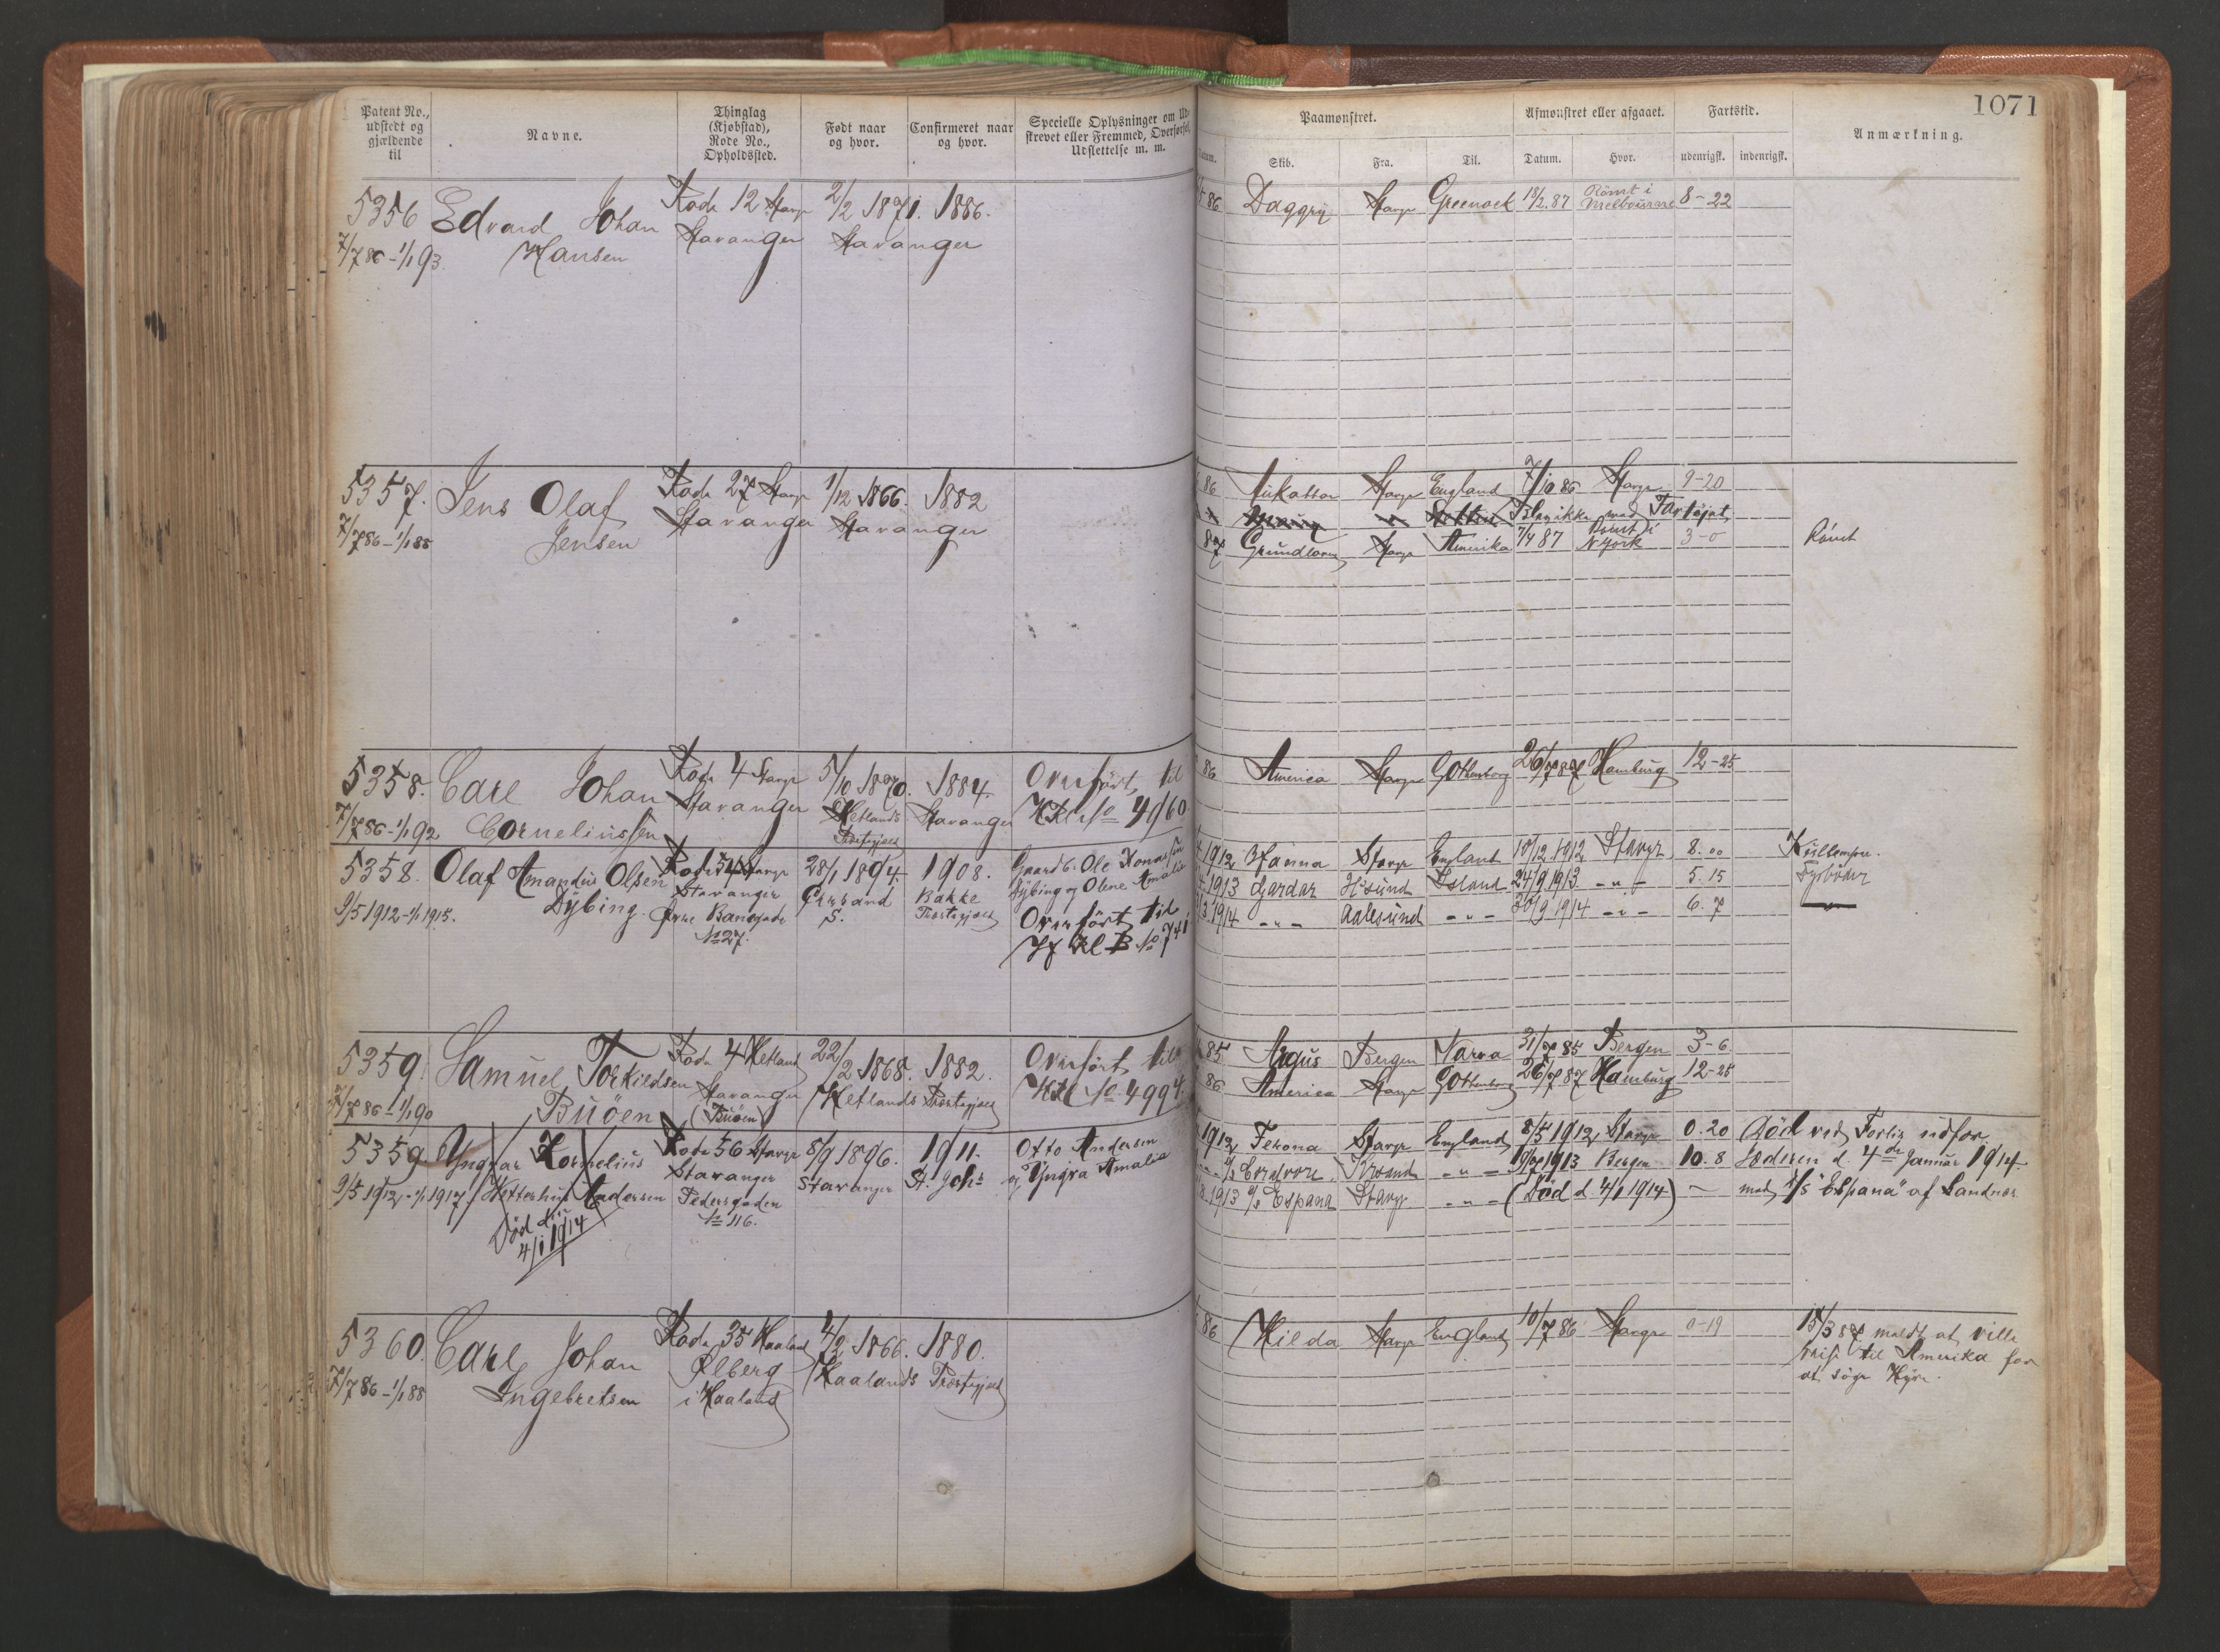 1071
Patent No., udstedt og gjældende til
Navne.
Thinglag (Kjøbstad), Rode No., Opholdssted.
Født naar og hvor.
Confirmeret naar og hvor.
Specielle Oplysninger om Ud-
skrevet eller Fremmed, Overførsel,
Udslettelse m. m.
Paamønstret.
Afmønstret eller afgaaet.
Fartstid.
Anmærkning.
Skib.
Fra.
Til.
Datum.
Hvor.
udenrigsk.
indenrigsk.
5356 Edvard Johan Rode 12 Stavgr 2/2 1871. 1886.
7/7 86 - 1/1 93 Hansen Stavanger Stavanger
86 Daggry Stavgr Greenock 18/2.87 Römt i Melbourne 8-22
5357. Jens Olaf Rode 27 Stavgr 1/12 1866. 1882
7/7 86 - 1/1 88 Jensen Stavanger Stavanger
86 Stavgr England 7/10 86 Stavgr 9-20
Stettin med Fartøjet
87 Stavgr Amerika 7/4 87 Römt i N York 3-0 Römt
5358. Carl Johan Rode 4 Stavgr 5/10 1870. 1884. Overført til
7/7 86 - 1/1 92 Corneliussen Stavanger Hetlands Præstegjæld Stavanger No 4960
86 America Stavgr Gottenborg 26/7 87 Hamburg 12-25
5358. Olaf Amandus Olsen Rode 54 Stavgr 28/1 1894. 1908. Ole Jonassen
9/5 1912 - 1/1 1915. Dybing Stavanger S. Bakke Præstegjæld Dybing og Olene Amalie
No 27. Overført til
B No 741
1912 Hanna Stavgr England 10/12 1912 Stavgr 8.00
1913 Gardar H:sund Island 24/9 1913 -"- 5.15
1914 -"- Aalesund -"- 30/9 1914 -"- 6.7
5359. Samuel Torkildsen Rode 4 Hetland 22/2 1868. 1882. Overført til
7/7 86 - 1/1 90 Buöen Stavanger (Buöen) Hetlands Præstegjæld No 4994
85 Argus Bergen Narva 31/7 85 Bergen 3-6
86 America Stavgr Gottenborg 26/7 87 Hamburg 12-25
5359. Yngvar Kornelius Rode 56 Stavgr 8/9 1896. 1911. Otto Andersen
9/5 1912 - 1/1 1917 Ketterhus Andersen Stavanger Stavanger St. Johs og Yngva Amalia
Pedersgaden No 116.
Död den 4/1 1914
1912 Stavgr England 8/5 1912 Stavgr 0.20 Död ved Forlis udfor
-"- England 1913 Bergen 10.8 d. 4de Januar 1914
1913 S/s Espana Stavgr -"- (Död d 4/1 1914) - med S/S "Espana" af Sandnes
5360. Carl Johan Rode 35 Haaland 4/2 1866. 1880.
7/7 86 - 1/1 88 Ingebretsen Ølberg i Haaland Haalands Præstegjæld
86 Hilda Stavgr England 10/7 86 Stavgr 0-19 15/3 87 meldt at ville
reise til Amerika for
at söge Hyre.